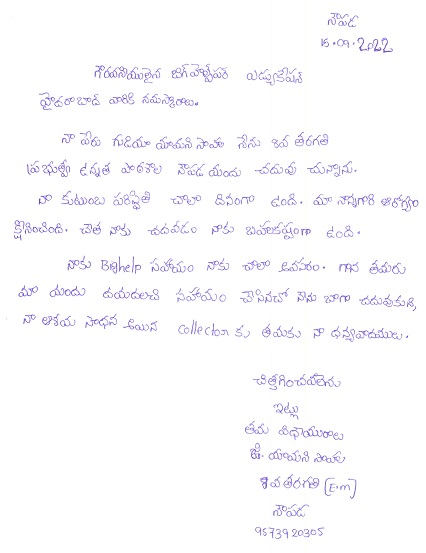 నౌపడ
16.09.2022
గౌరవనీయులైన బిగ్ హెల్ప్ ఫర్ ఎడ్యుకేషన్
హైదరాబాద్ వారికి నమస్కారాలు.
నా పేరు గుడియా యామిని సాహు నేను 8వ తరగతి
ప్రభుత్వ ఉన్నత పాఠశాల నౌపడ యందు చదువు చున్నాను.
నా కుటుంబ పరిస్థితి చాలా దీనంగా ఉంది. మా నాన్నగారి ఆరోగ్యం
క్షీణించింది. చేత నాకు చదవడం నాకు బహుకష్టంగా ఉంది.
నాకు Bighelp సహాయం నాకు చాలా అవసరం. గాన తమరు
మా యందు దయదలచి సహాయం చేసినచో నేను బాగా చదువుకుని,
నా ఆశయ సాధన అయిన collector కు తమకు నా ధన్యవాదములు.
చిత్తగించవలెను
ఇట్లు
తమ విధేయురాలు
జి. యామిని సాహు
8వ తరగతి (E.m)
నౌపడ
9573920305